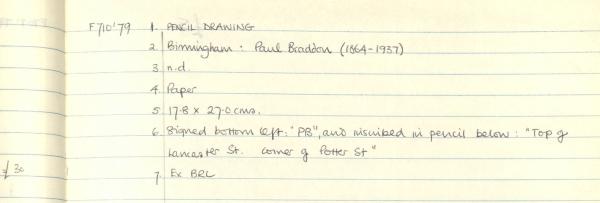 F710'79 1. PENCIL DRAWING
2. Birmingham: Paul Braddon (1864-1937)
3. n.d.
4. Paper
5. 17.8 x 27.0 cms.
6. Signed bottom left: "PB", and inscribed in pencil below: "Top of
Lancaster St. corner of Potter St"
£30 7. Ex BRL